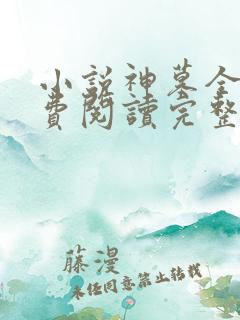 小説神墓全
費閱讀完整
藤漫
未经同意禁止转载